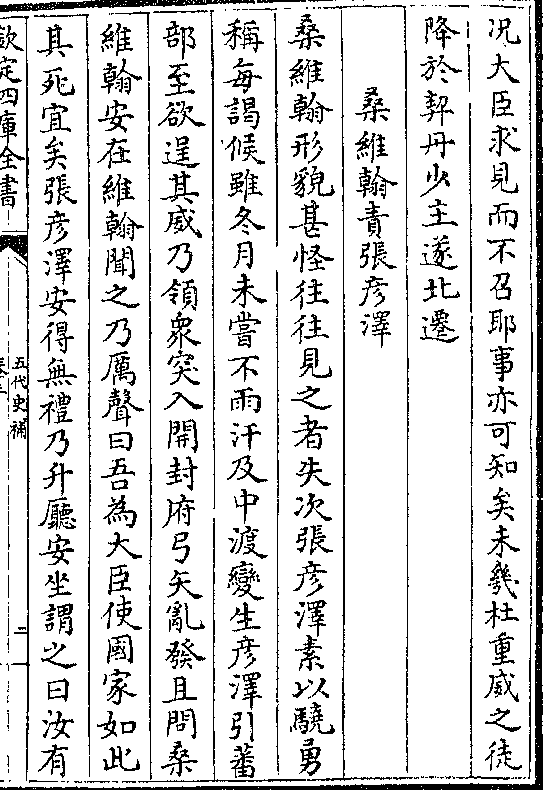 况大臣求見而不召耶事亦可知矣未幾杜重威之徒
降於契丹少主遂北遷
桑維翰責張彦澤
桑維翰形貌甚怪往往見之者失次張彦澤素以驍勇
稱每謁候雖冬月未嘗不雨汗及中渡變生彦澤引蕃
部至欲逞其威乃領衆突入開封府弓矢亂發且問桑
維翰安在維翰聞之乃厲聲曰吾為大臣使國家如此
其死宜矣張彦澤安得無禮乃升廳安坐謂之曰汝有
欽定四庫全書
五代史補
二